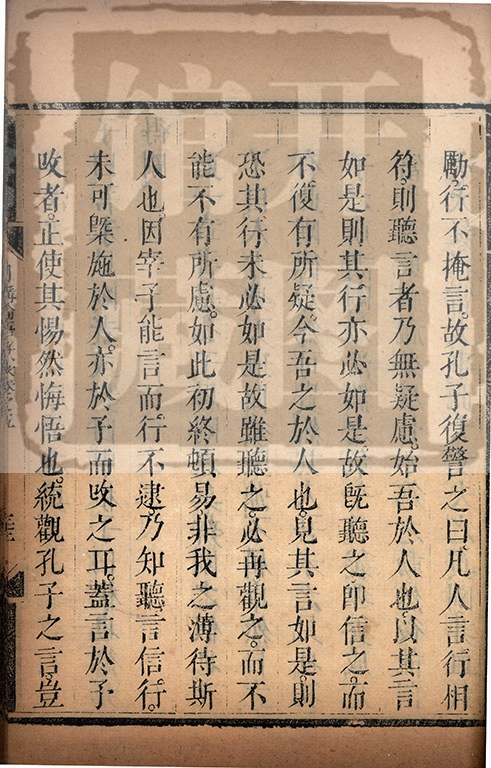 勵行不掩言。故孔子復警之曰。凡人言行相
符。則聽言者乃無疑慮。始吾於人也。以其言
如是。則其行亦必如是。故旣聽之。卽信之。而
不復有所疑。今吾之於人也。見其言如是。則
恐其行未必如是。故雖聽之。必再觀之。而不
能不有所慮。如此初終頓易。非我之薄待斯
人也。因宰子能言而行不逮。乃知聽言信行。
未可槩施於人。亦於予而改之耳。蓋言於予
改者。正使其惕然悔悟也。統觀孔子之言。豈